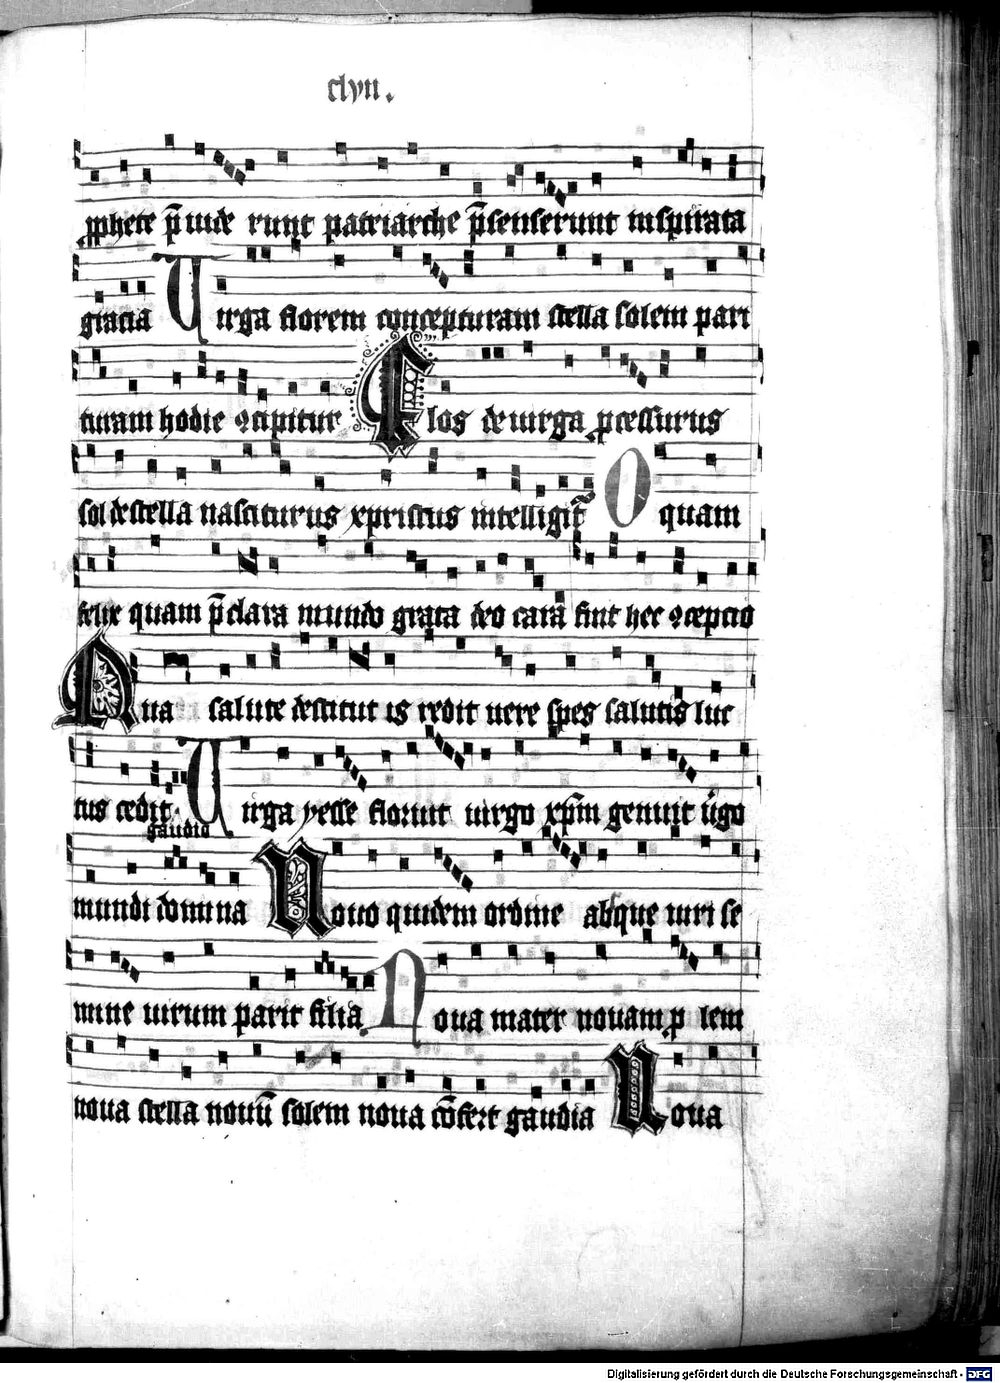 clvii.
pphete p̄uide runt patriarche p̄senserunt inspirata
gracia Uirga florem concepturam stella solem pari
turam hodie ꝯcipitur Flos de uirga pcessurus
sol de stella nasciturus xpristus intelligit̄ O quam
felix quam p̄clara mundo grata deo cara fuit hec ꝯcepcio
Qua salute destitut is redit uere spes salutis luc
tus cedit gaudio Uirga yesse floruit uirgo xp̄m genuit u̇go
mundi domina Nouo quidem ordine absque uiri se
mine uirum parit filia Noua mater nouam p lem
noua stella nouū solem noua cōfert gaudia Noua
Digitalisierung gefördert durch die Deutsche Forschungsgemeinschaft - DFG